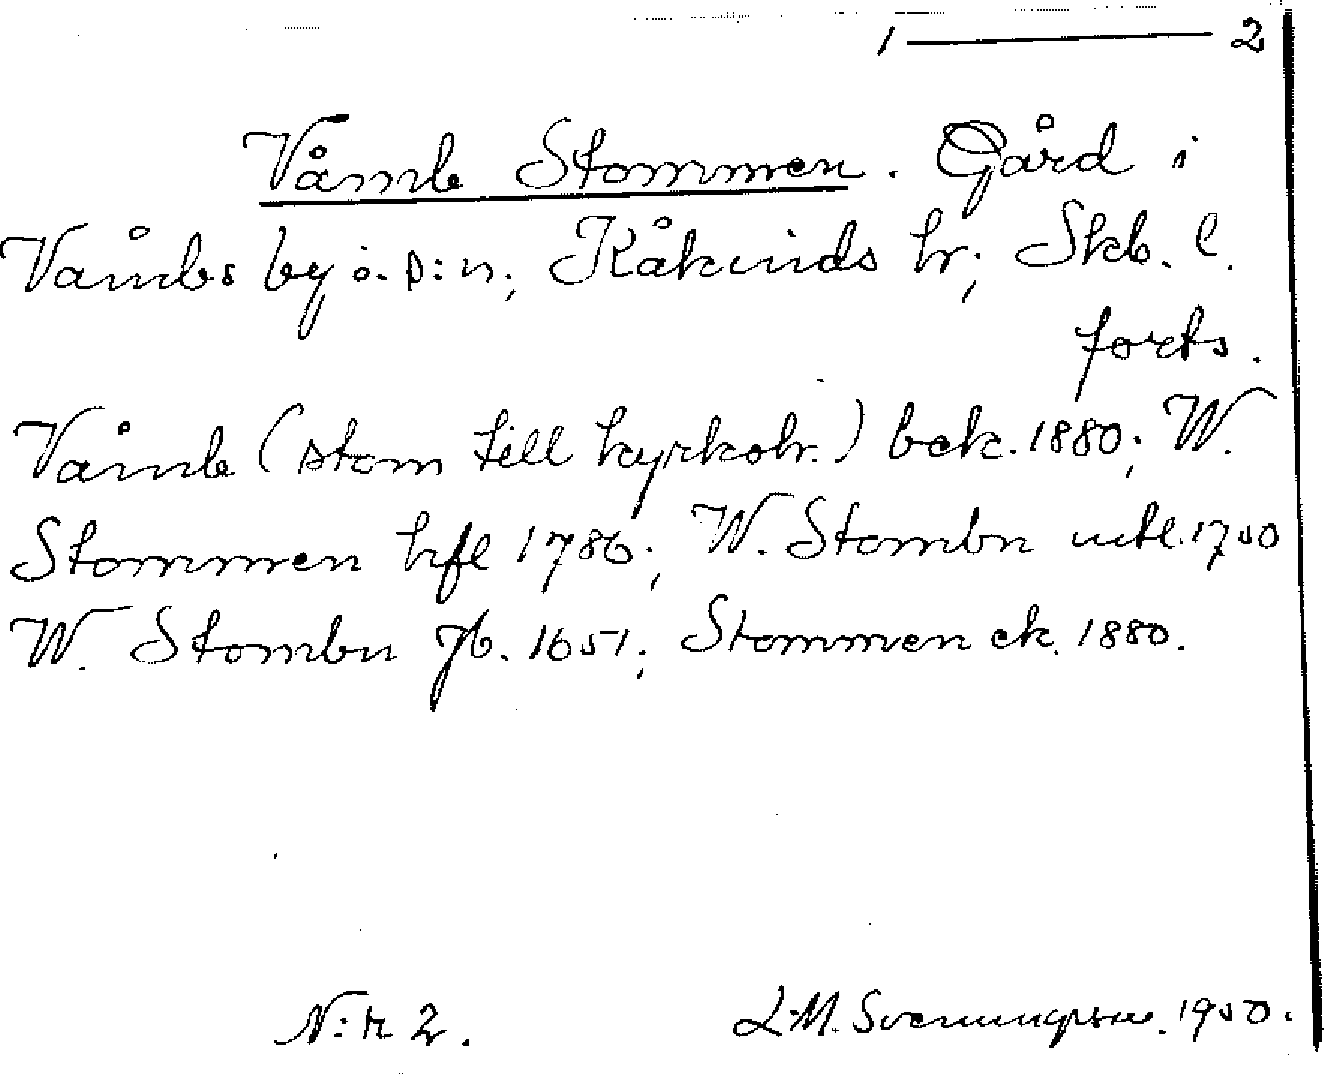 1 ——— 2
Våmb Stommen. Gård i
Våmbs by o. s:n, Kåkinds hr, Skb. l.
forts.
Våmb (stom till kyrkohr.) bek. 1880; W.
Stommen hfl 1786; W. Stombn utl. 1750
W. Stombn jb. 1651; Stommen ek. 1880.
N:r 2. L.M. Svenungsson. 1950.